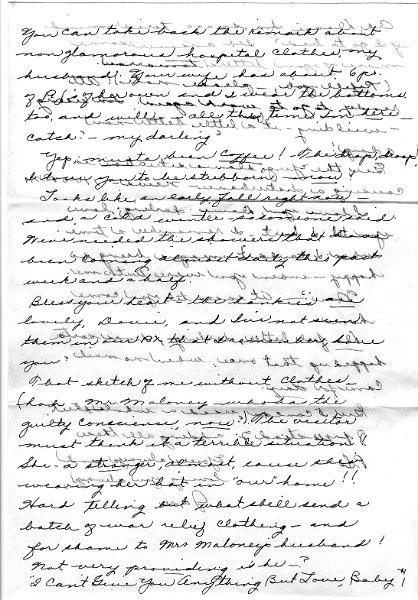 You can take back the remark about
non glamorous hospital clothes, my
husband! Your wife has about 6 pr.
of P.J.'s of her own and
too, and will all the time I'm here —
catch? — my darling?
Yep, musta' been Coffee! The drip, drip!
I know you to be stubborn, Don
Looks like an early fall right now —
and a cold winter someone said.
We've needed the showers that have
been coming almost daily the past
week and a half.
Bless your heart — the hankies are
lovely, Davie, and I've not seen
them in our PX Say
you?
That sketch of me without clothes
(look Mr Maloney — who has the
guilty consciense, now?) The visitor
must think it a terrible situation!
She a stranger, almost, cause she's
wearing her hat in "our" home!!
Hard telling but what she'll send a
batch of war relief clothing — and
for shame to Mrs Maloney's husband!
Not very providing is he — ?
"I Can't Give You Anything But Love, Baby"!